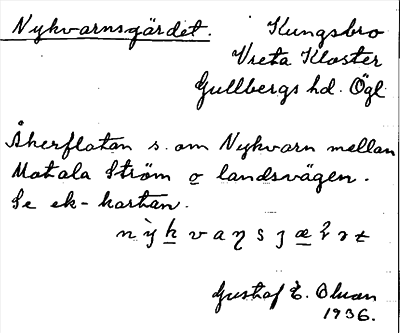 Nykvarnsgärdet. Kungsbro
Vreta Kloster
Gullbergs hd. Ögl
Åkerflatan s. om Nykvarn mellan
Motala Ström o landsvägen.
Se ek-kartan.
Gustaf E.
1936.